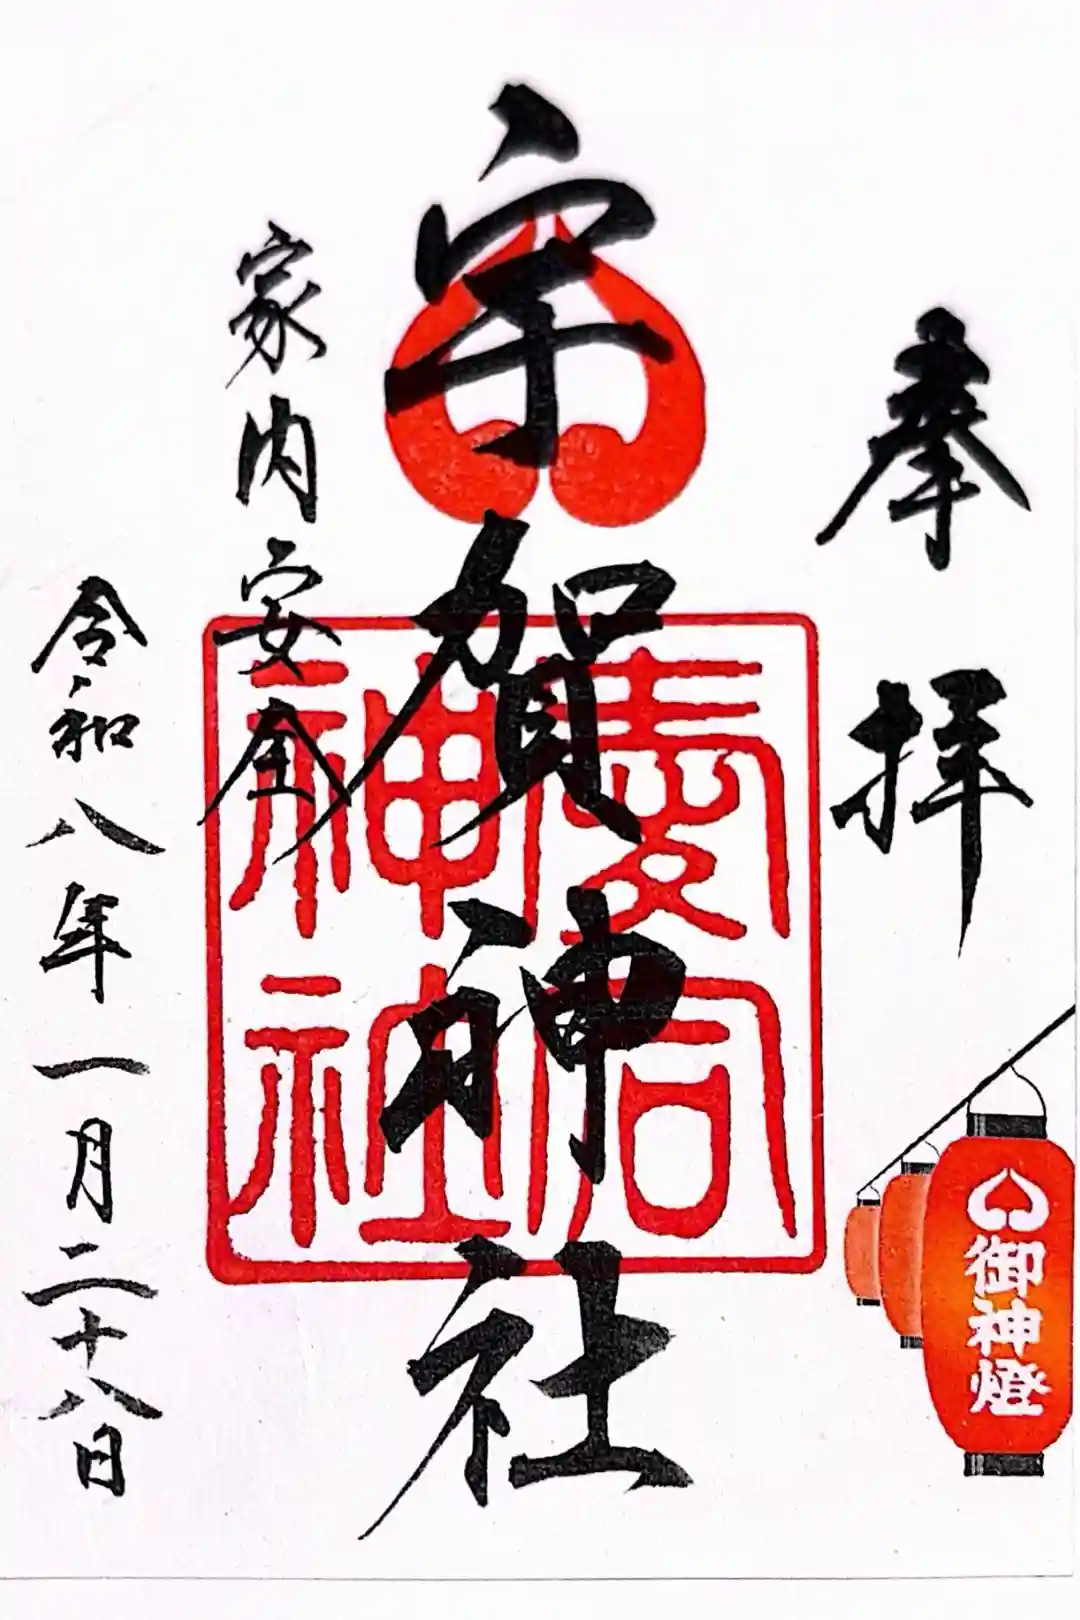 奉拝
御神燈
宇賀神社
神社
家内安全
令和八年一月二十八日